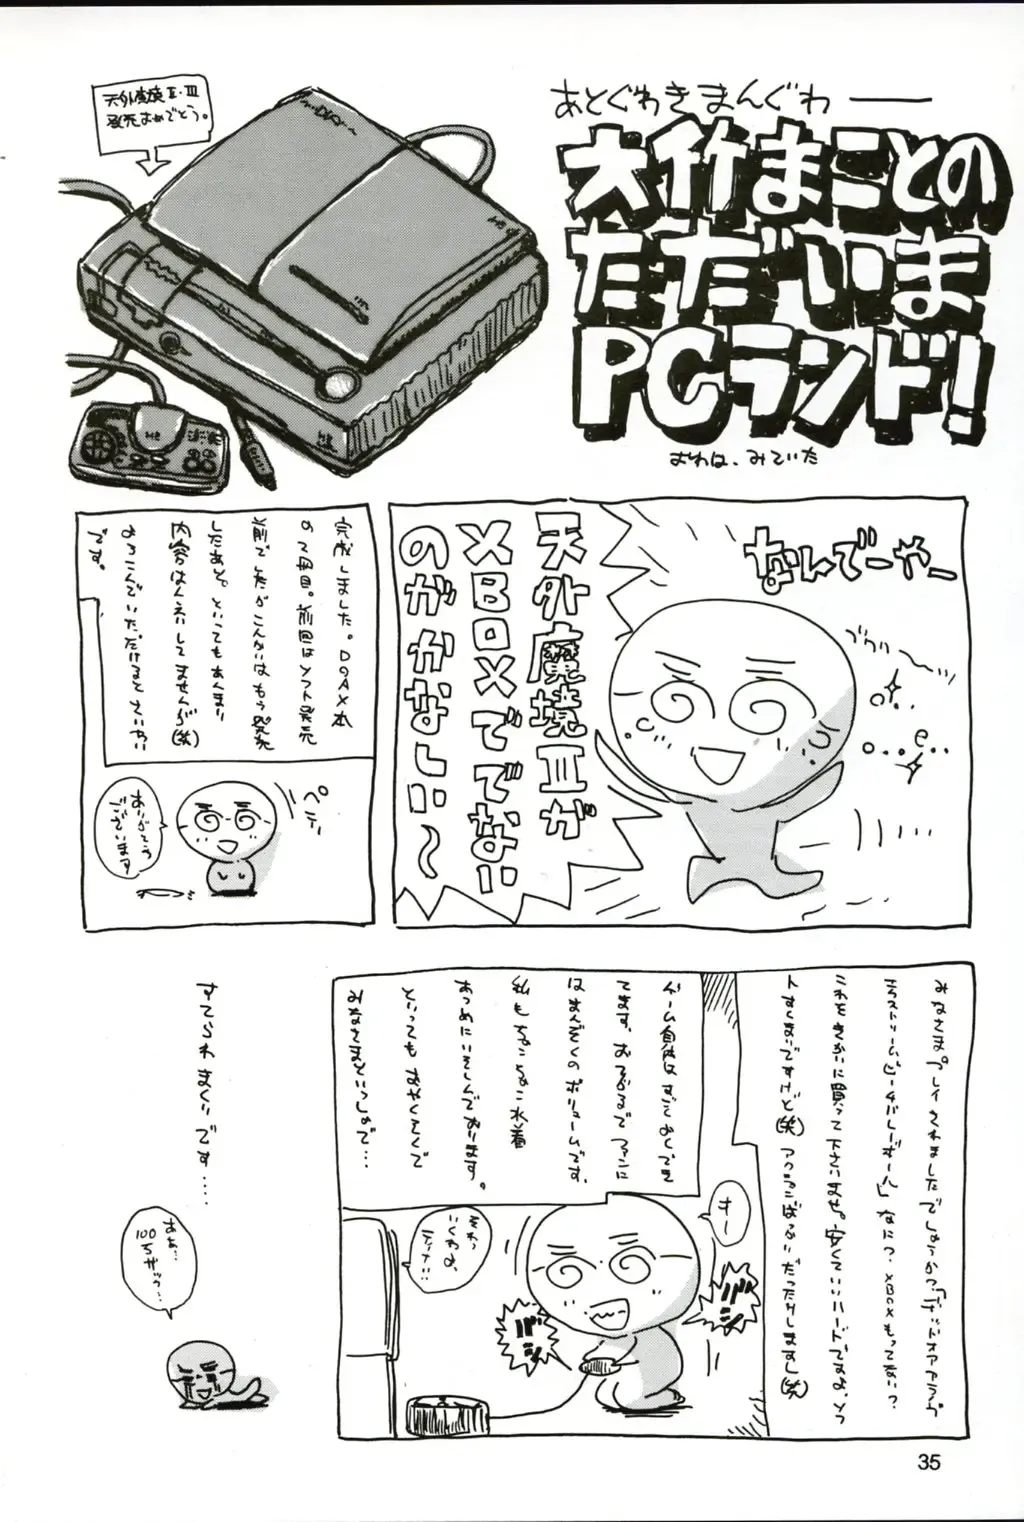 あとぐわきまんぐわ——
大竹まことの
ただいま
PCランド!
おわは、みていた
天外魔境II・III
発売おめでとう。
なんでーやー
天外魔境IIIが
XBOXででない
のがかなしい〜
完成しました。DOAX本
の2冊目。前回はソフト発売
前でしたがこんかいはもう発売
したあと。といってもあんまり
内容はんえいしてませんが(笑)
よろこんでいただけるとさいわい
です。
ペコ
ありがとう
ございます
みなさま。プレイされましたでしょうか?「デッドオアアライブ
エクストリームビーチバレーボール」なに?XBOXもってない?
これをきかいに買って下さいませ。安くていいハードですよ、ソフ
トすくないですけど(笑)
ゲーム自体はすごくよくでき
てます。おプるプるでファンに
はまんぞくのボリュームです。
私もちょこちょこ水着
あつめにいそしんでおります。
といってもおやくそくで
みなさまといっしょで…
すー
それっ
すてられまくりです……
ああ…
100万ザックが…
35